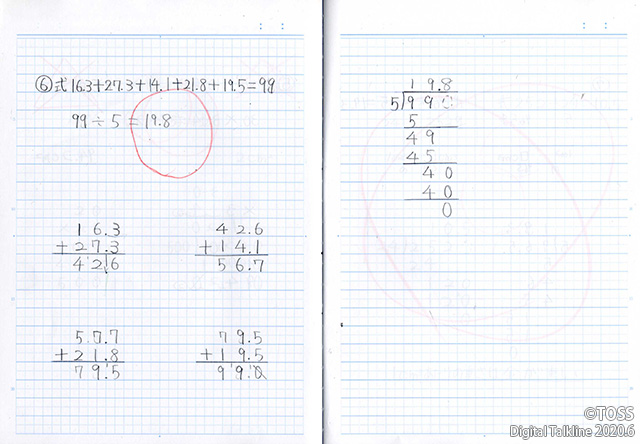 ⑥式16.3+27.3+14.1+21.8+19.5=99
99÷5=19.8
16.3
+27.3
42.6
42.6
+14.1
56.7
5.7.7
+21.8
79.5
79.5
+19.5
99.0
19.8
5)990
5
49
45
40
40
0
©TOSS
Digital Talkline 2020.6